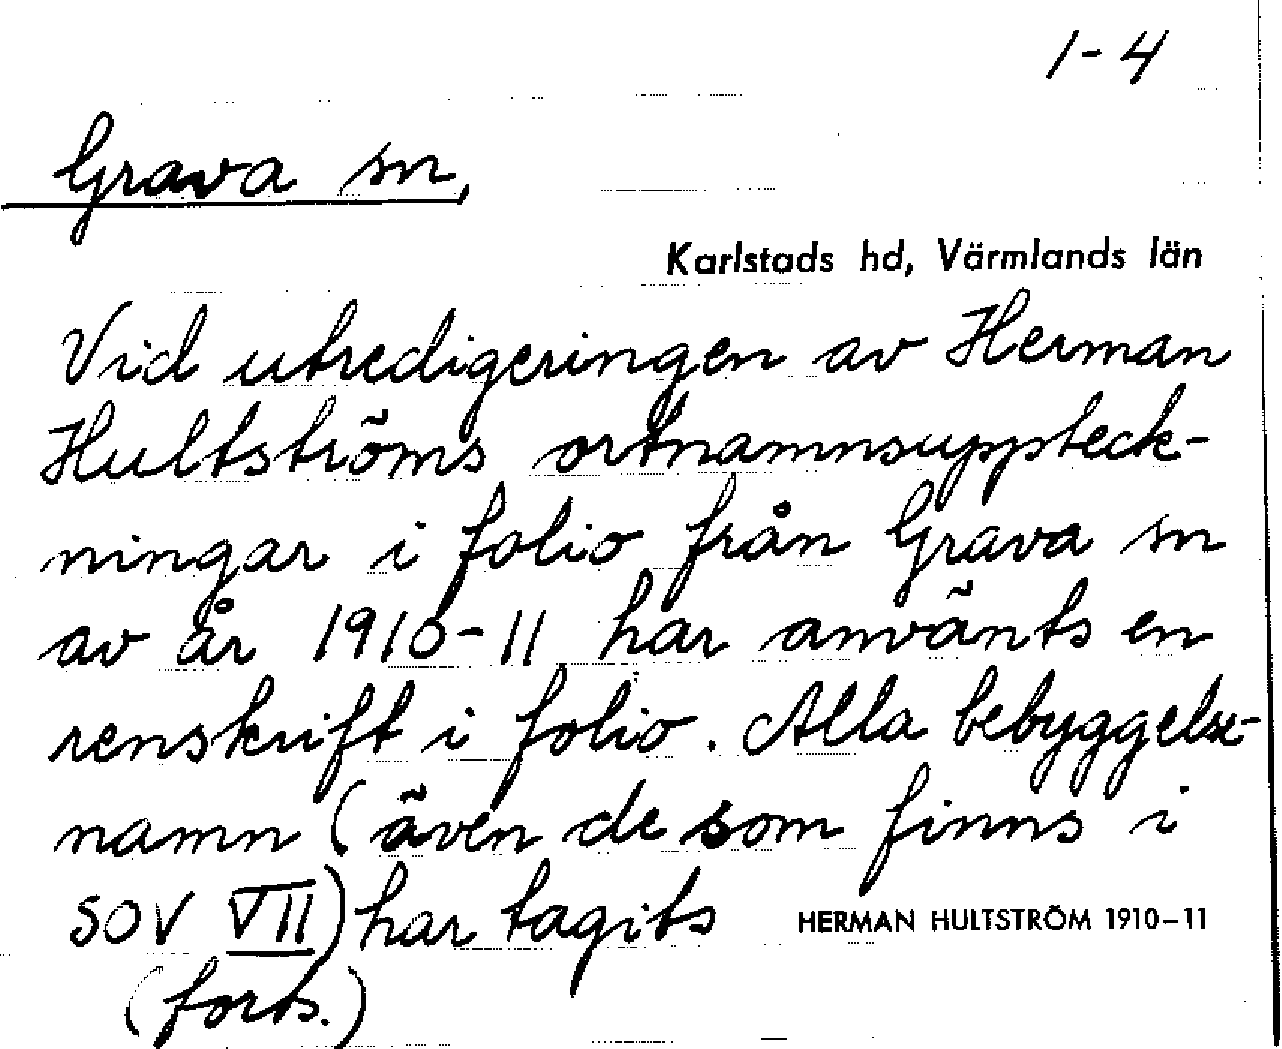 1-4
Grava sn,
Karlstads hd, Värmlands län
Vid utredigeringen av Herman
Hultströms ortnamnsuppteck-
ningar i folio från Grava sn
av år 1910-11 har använts en
renskrift i folio. Alla bebyggelse-
namn (även de som finns i
SOV VII) har tagits
HERMAN HULTSTRÖM 1910-11
(forts.)